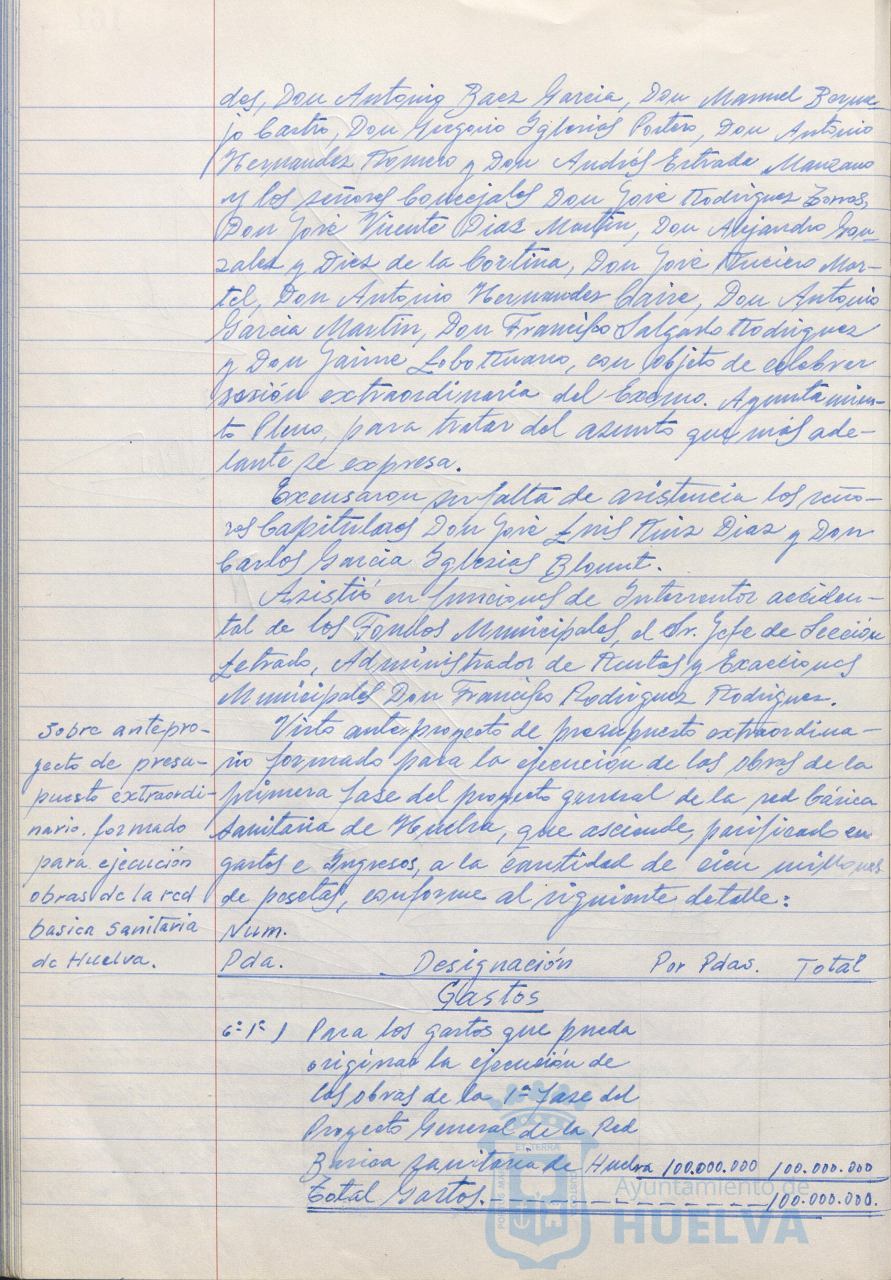 dos, Don Antonio Baez Garcia, Don Manuel Berme-
jo Castro, Don Gregorio Iglesias Portero, Don Antonio
Hernandez Romero y Don Andrés Estrada Manzano
y los señores Concejales Don José Rodriguez Zorras,
Don José Vicente Diaz Martin, Don Alejandro Gon-
zalez y Diez de la Cortina, Don José Ruciero Mar-
tel, Don Antonio Hernandez Caire, Don Antonio
Garcia Martin, Don Francisco Salgado Rodriguez
y Don Jaime Lobo Ruano, con objeto de celebrar
sesión extraordinaria del Excmo. Ayuntamien-
to Pleno, para tratar del asunto que más ade-
lante se expresa.
Excusaron su falta de asistencia los seño-
res Capitulares Don José Luis Ruiz Diaz y Don
Carlos Garcia Iglesias Blount.
Asistió en funciones de Interventor acciden-
tal de los Fondos Municipales, el Sr. Jefe de Sección
Letrado, Administrador de Rentas y Exacciones
Municipales Don Francisco Rodriguez Rodriguez.
Sobre antepro-
yecto de presu-
puesto extraordi-
nario. formado
para ejecución
obras de la red
basica sanitaria
de Huelva.
Visto anteproyecto de presupuesto extraordina-
rio formado para la ejecución de las obras de la
primera fase del proyecto general de la red básica
sanitaria de Huelva, que asciende, parificado en
gastos e Ingresos, a la cantidad de cien millones
de pesetas, conforme al siguiente detalle:
Num.
Pda. Designación Por Pdas. Total
Gastos
6º 1º 1 Para los gastos que pueda
originar la ejecución de
las obras de la 1ª fase del
Proyecto General de la Red
Basica sanitaria de Huelva 100.000.000 100.000.000
Total Gastos. - - - - - - - - - - 100.000.000.
Ayuntamiento de
HUELVA